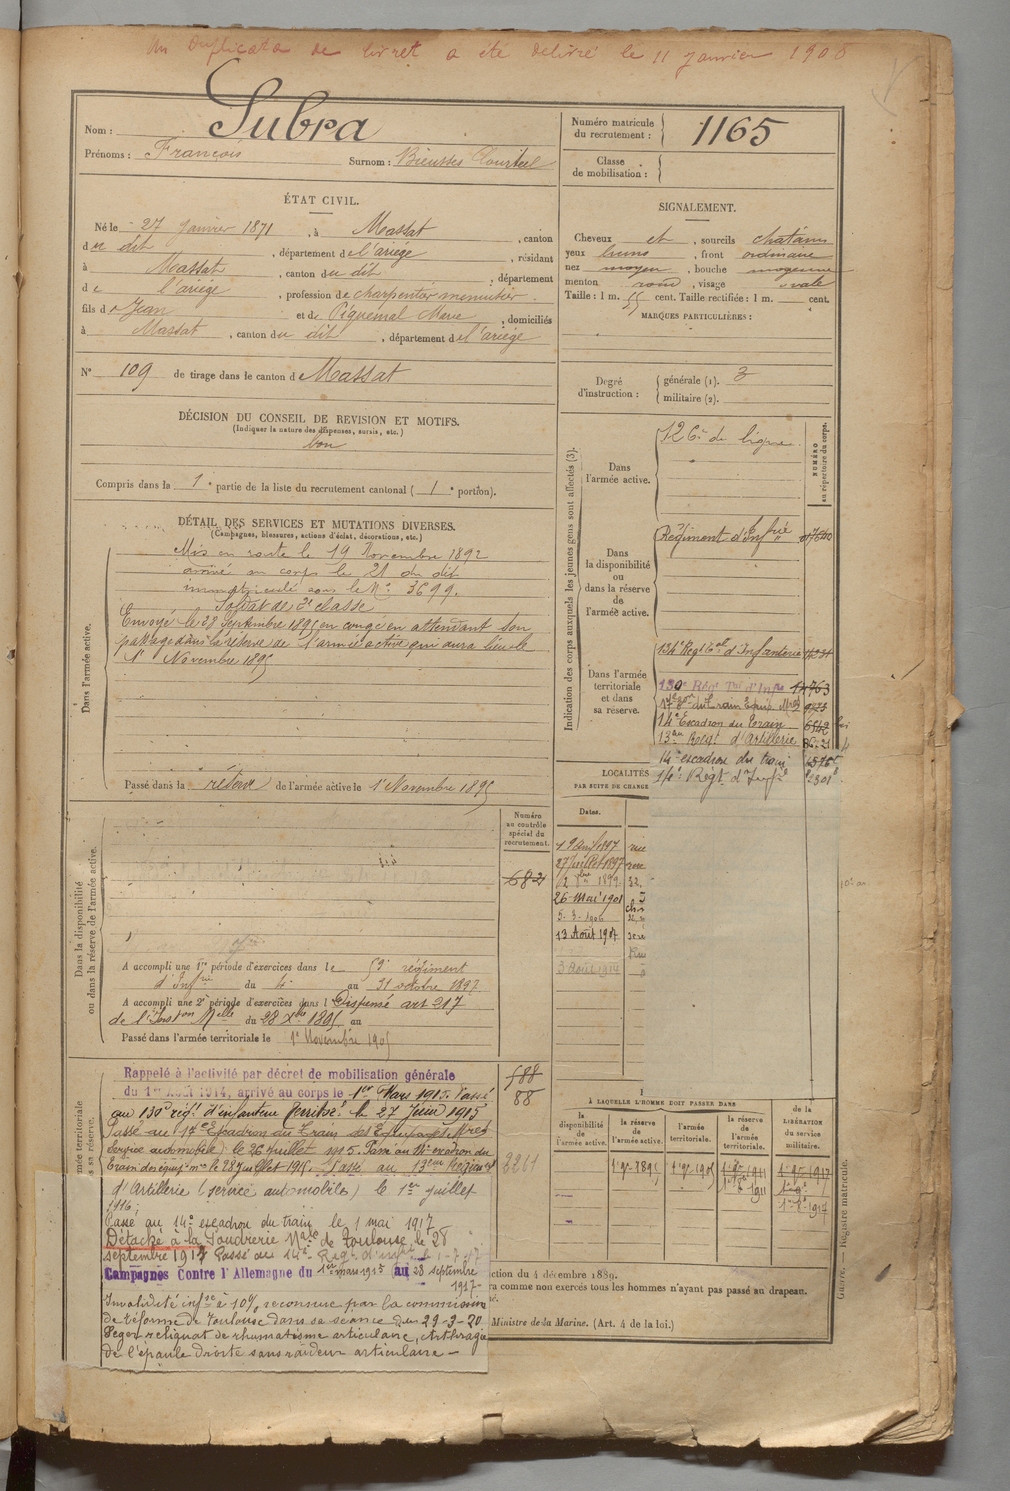 Un duplicata de livret a été délivré le 11 janvier 1908
Nom : Subra
Prénoms : François Surnom :
Numéro matricule du recrutement : 1165
Classe de mobilisation :
ÉTAT CIVIL.
Né le 27 janvier 1871, à Massat, canton
du dit, département de l'ariège, résidant
à Massat, canton du dit, département
de l'ariège, profession de charpentier menuisier.
fils de Jean et de Piquemal Marie, domiciliés
à Massat, canton du dit, département de l'ariège
N° 109 de tirage dans le canton de Massat
SIGNALEMENT.
Cheveux et, sourcils chatains
yeux bruns, front ordinaire
nez moyen, bouche moyenne
menton rond, visage ovale
Taille : 1 m. 55 cent. Taille rectifiée : 1 m. cent.
MARQUES PARTICULIÈRES :
Degré d'instruction : générale (1). 3
militaire (2).
DÉCISION DU CONSEIL DE REVISION ET MOTIFS.
(Indiquer la nature des dispenses, sursis, etc.)
bon
Compris dans la 1e partie de la liste du recrutement cantonal (1e portion).
DÉTAIL DES SERVICES ET MUTATIONS DIVERSES.
(Campagnes, blessures, actions d'éclat, décorations, etc.)
Dans l'armée active.
Mis en route le 19 Novembre 1892
arrivé au corps le 21 du dit
immatriculé sous le N° 3699.
Soldat de 2e classe
Envoyé le 28 Septembre 1895 en congé en attendant son
passage dans la réserve de l'armée active qui aura lieu le
1er Novembre 1895
Passé dans la réserve de l'armée active le 1er Novembre 1895
Indication des corps auxquels les jeunes gens sont affectés (3).
NUMÉRO au répertoire du corps.
Dans l'armée active.
126e de ligne
Dans la disponibilité ou dans la réserve de l'armée active.
Régiment d'Infrie
Dans l'armée territoriale et dans sa réserve.
134e Régt Tal d'Infanterie
130e Régt Tal d'Infie
17e Eson du train Equip. Mres
14e Escadron du Train
13me Regt d'Artillerie
14e escadron du train
14e Regt d'Infie
LOCALITÉS
PAR SUITE DE CHANGE
Dates.
27 Juillet 1897
1899
26 Mai 1901
5-3-1906
13 Août 1907
3 Août 1914
Dans la disponibilité ou dans la réserve de l'armée active.
Numéro au contrôle spécial du recrutement.
682
A accompli une 1re période d'exercices dans le 59e régiment
d'Infrie du 4 au 31 octobre 1897
A accompli une 2e période d'exercices dans l Dispensé art 217
de l'Inston Melle du 28 Xbre 1895 au
Passé dans l'armée territoriale le 1er Novembre 1905
588
88
3211
Rappelé à l'activité par décret de mobilisation générale
du 1er Août 1914, arrivé au corps le 1er Mars 1915. Passé
au 130e régt d'infanterie territle le 27 Juin 1915
Passé au 17e Escadron du Train des Equipages Mres
Service automobile) le 26 juillet 1915. Passé au 14e escadron du
Train des équip. mres le 28 Juillet 1915. Passé au 13eme Régiment
d'Artillerie (service automobile) le 1er juillet
1916;
Passé au 14e escadron du train le 1 mai 1917
Détaché à la Poudrerie Nale de Toulouse, le 28
septembre 1917 Passé au 14e Regt d'infie le 1-7-17
Campagnes Contre l'Allemagne du 1er mars 1915 au 28 septembre
1917-
Invalidité infre à 10% reconnue par la commission
de réforme de Toulouse dans sa séance du 29-3-20
Leger reliquat de rhumatisme articulaire, Arthralgie
de l'épaule droite sans raideur articulaire -
À LAQUELLE L'HOMME DOIT PASSER DANS
la disponibilité de l'armée active.
la réserve de l'armée active.
l'armée territoriale.
la réserve de l'armée territoriale.
de la LIBÉRATION du service militaire.
1er 9bre 1895 1er 9bre 1905 1er 9bre 1911 1er 9bre 1917
1er 8bre 1911
1er 8bre 1917
ction du 4 décembre 1889.
ra comme non exercés tous les hommes n'ayant pas passé au drapeau.
Ministre de la Marine. (Art. 4 de la loi.)
Guerre. — Registre matricule.